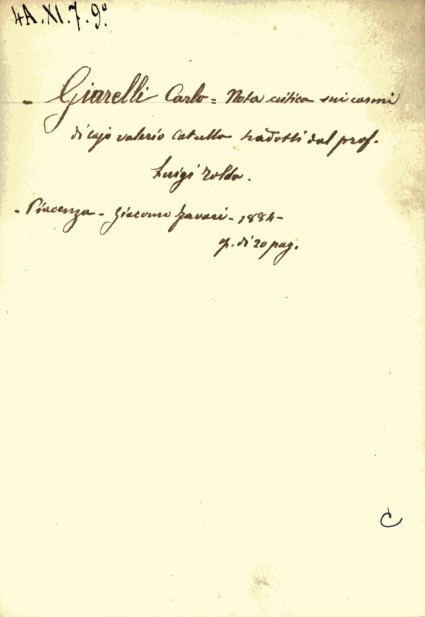 4A.XI.7.9º
- Giarelli Carlo = Nota critica sui carmi
di Cajo Valerio Catullo tradotti dal prof.
Luigi Toldo.
- Piacenza - Giacomo Favari - 1884 -
op. di 20 pag.
C